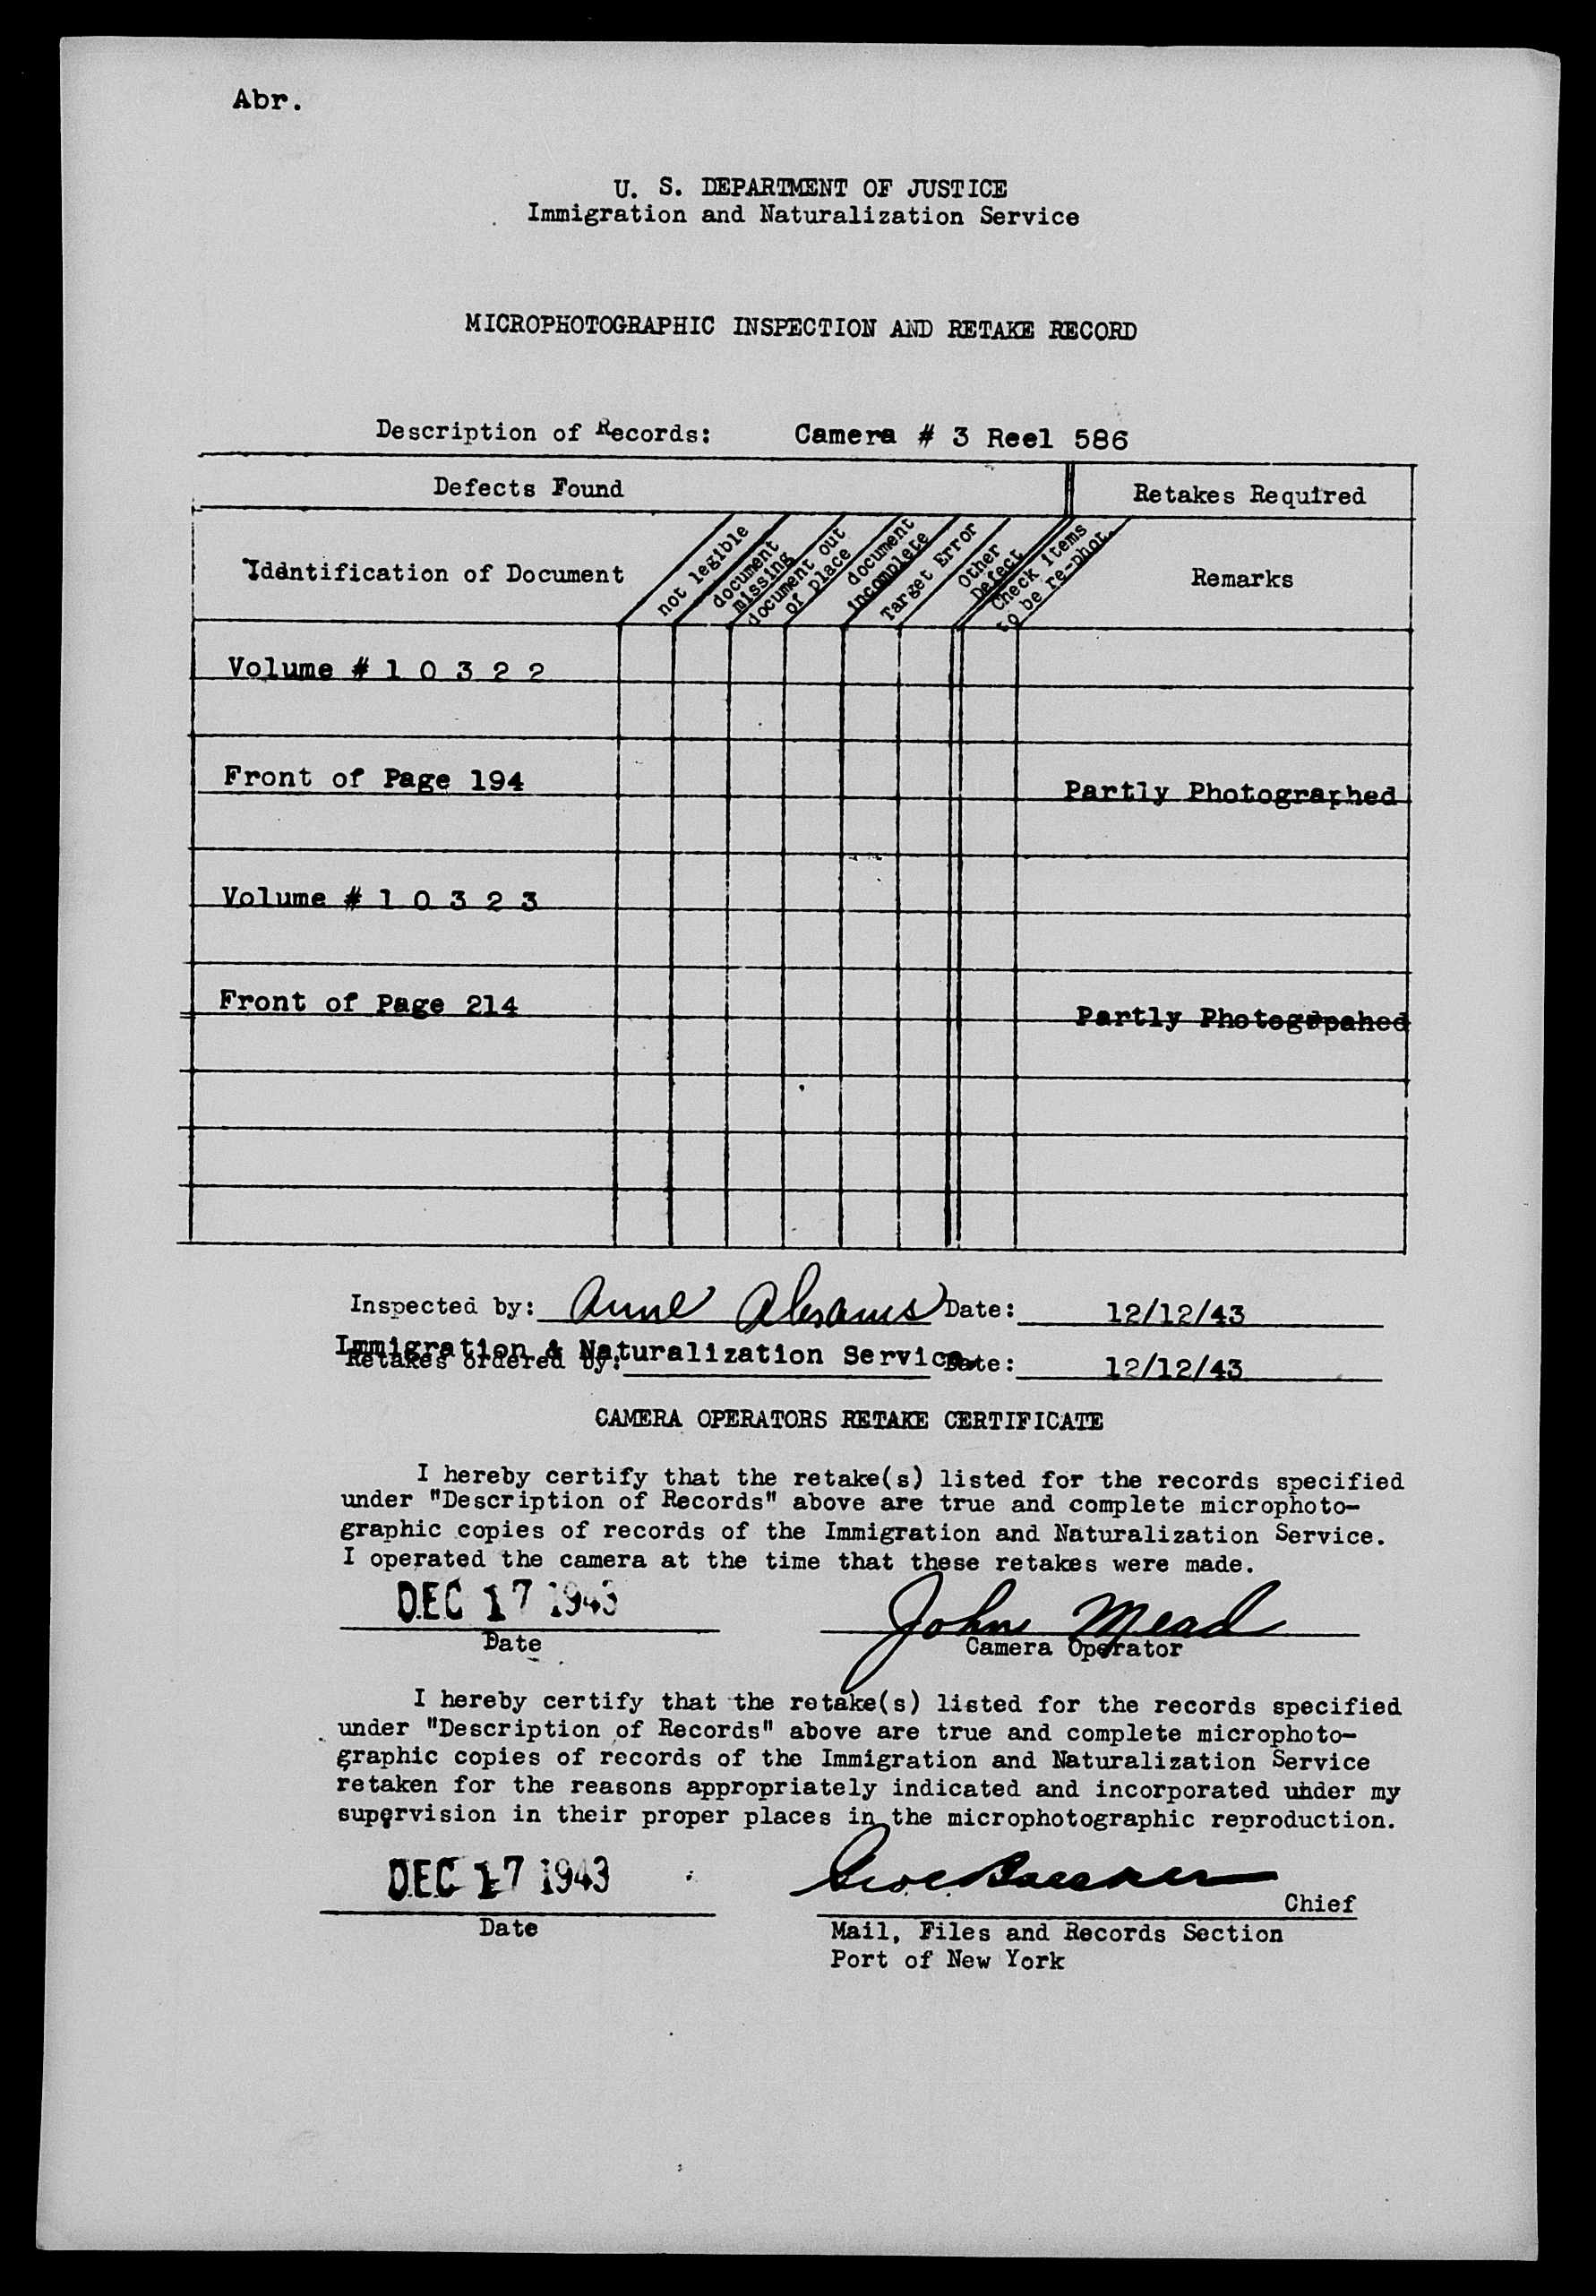 Abr.
U. S. DEPARTMENT OF JUSTICE
Immigration and Naturalization Service
MICROPHOTOGRAPHIC INSPECTION AND RETAKE RECORD
Description of Records: Camera # 3 Reel 586
Defects Found
Retakes Required
Identification of Document
not legible
document missing
document out of place
document incomplete
Target Error
Other Defect
Check items to be re-phot.
Remarks
Volume # 1 0 3 2 2
Front of Page 194 Partly Photographed
Volume # 1 0 3 2 3
Front of Page 214 Partly Photogrpahed
Inspected by: Anne Abrams Date: 12/12/43
Immigration & Naturalization Service.
Retakes ordered by: Date: 12/12/43
CAMERA OPERATORS RETAKE CERTIFICATE
I hereby certify that the retake(s) listed for the records specified
under "Description of Records" above are true and complete microphoto-
graphic copies of records of the Immigration and Naturalization Service.
I operated the camera at the time that these retakes were made.
DEC 17 1943 John Mead
Date Camera Operator
I hereby certify that the retake(s) listed for the records specified
under "Description of Records" above are true and complete microphoto-
graphic copies of records of the Immigration and Naturalization Service
retaken for the reasons appropriately indicated and incorporated under my
supervision in their proper places in the microphotographic reproduction.
DEC 17 1943
Chief
Date Mail, Files and Records Section
Port of New York